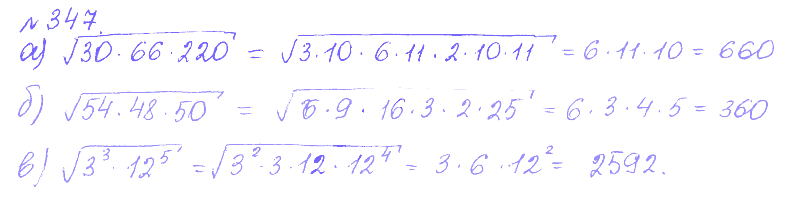 № 347.
а) √(30 · 66 · 220) = √(3 · 10 · 6 · 11 · 2 · 10 · 11) = 6 · 11 · 10 = 660
б) √(54 · 48 · 50) = √(6 · 9 · 16 · 3 · 2 · 25) = 6 · 3 · 4 · 5 = 360
в) √(3³ · 12⁵) = √(3² · 3 · 12 · 12⁴) = 3 · 6 · 12² = 2592.